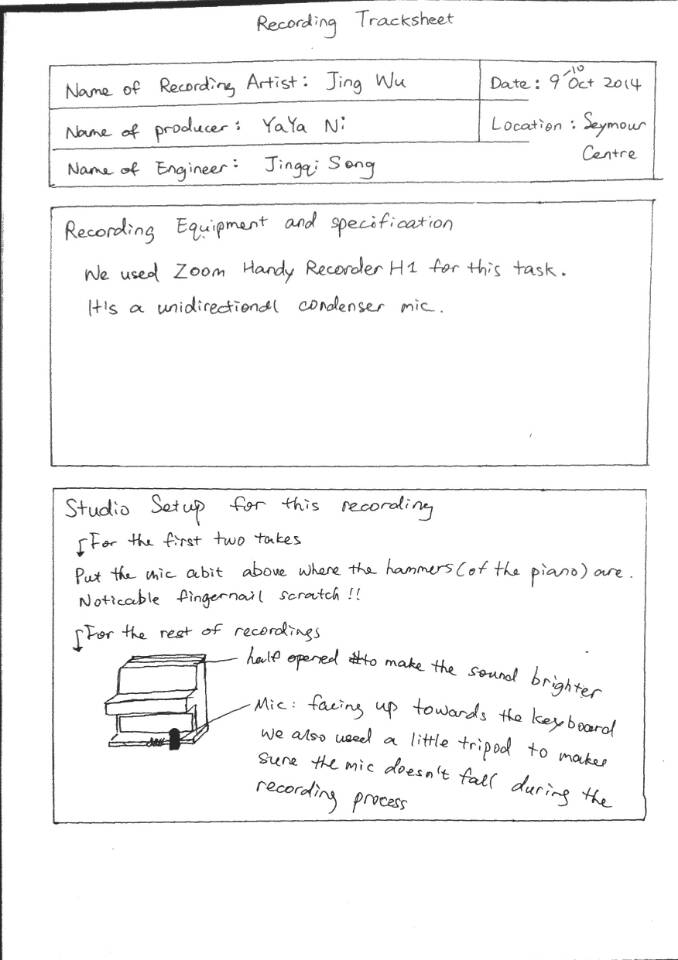 Recording Tracksheet
Name of Recording Artist: Jing Wu
Date: 9-10 Oct 2014
Name of producer: YaYa Ni
Location: Seymour
Centre
Name of Engineer: Jingqi Song
Recording Equipment and specification
We used Zoom Handy Recorder H1 for this task.
It's a unidirectional condenser mic.
Studio Setup for this recording
For the first two takes
Put the mic abit above where the hammers (of the piano) are.
Noticable fingernail scratch!!
For the rest of recordings
half opened to make the sound brighter
Mic: facing up towards the keyboard
We also used a little tripod to makes
sure the mic doesn't fall during the
recording process